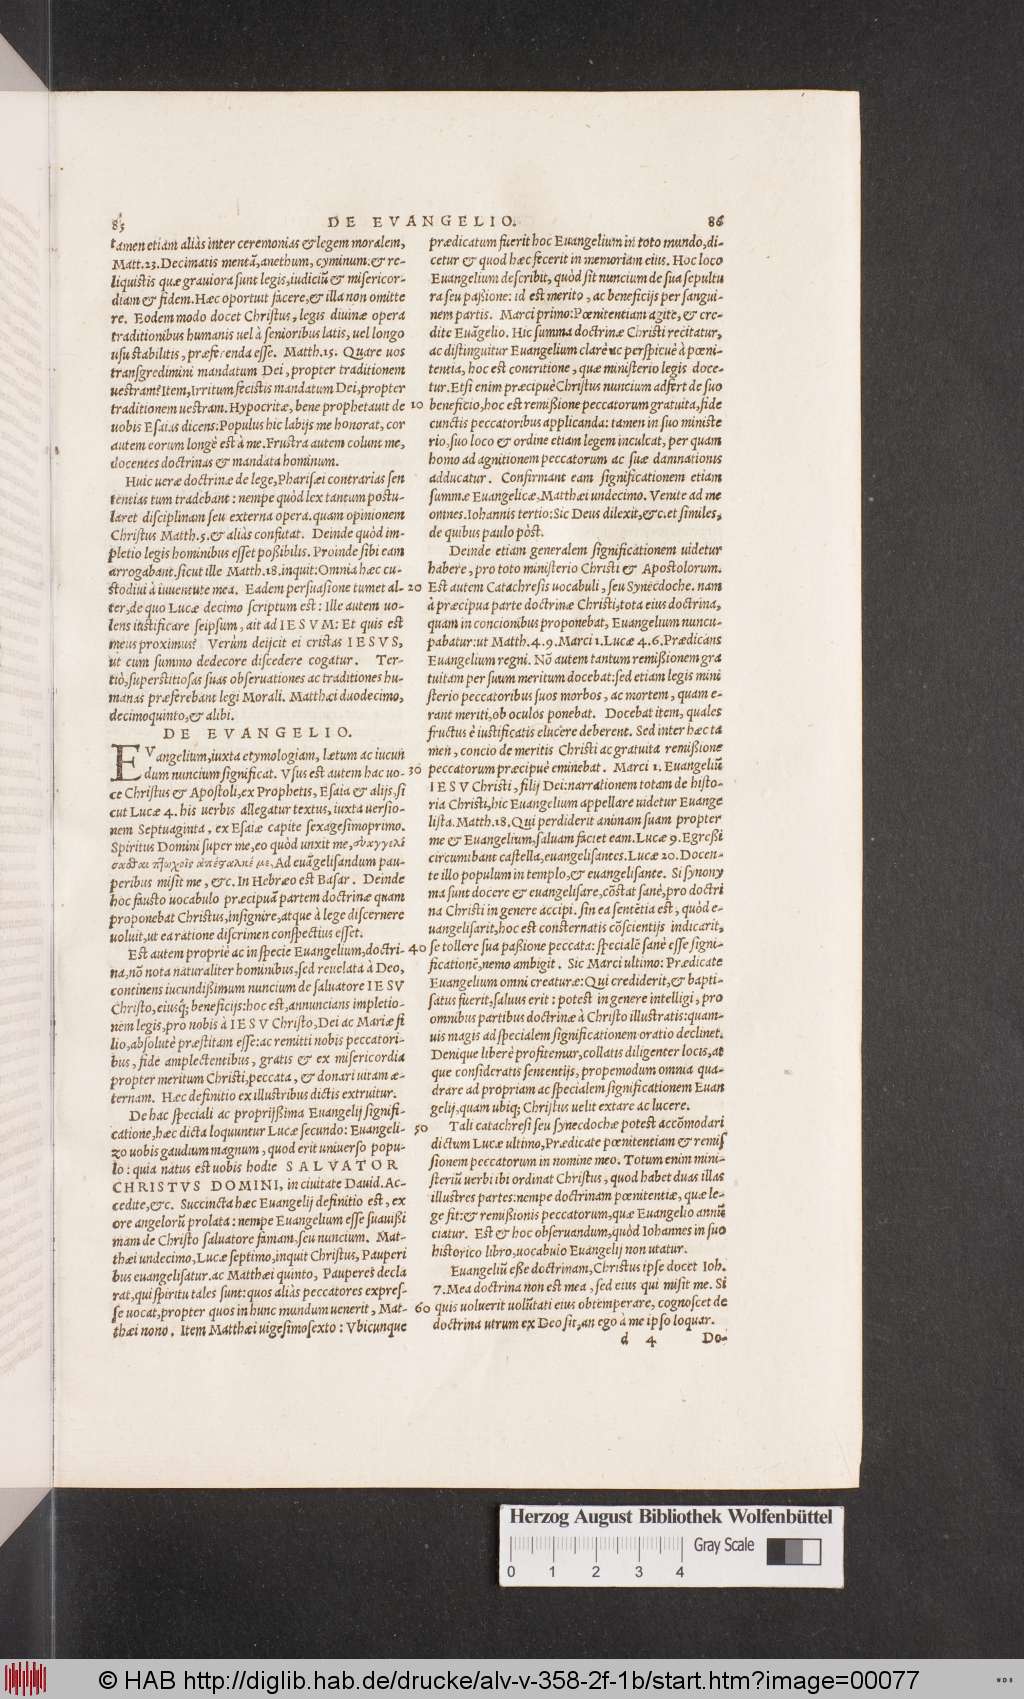 85
DE EVANGELIO.
86
tamen etiam aliàs inter ceremonias & legem moralem,
Matt.23. Decimatis mentã, anethum, cyminum. & re-
liquistis quæ grauiora sunt legis, iudiciũ & misericor-
diam & fidem. Hæc oportuit facere, & illa non omitte
re. Eodem modo docet Christus, legis diuinæ opera
traditionibus humanis uel à senioribus latis, uel longo
usu stabilitis, præferenda esse. Matth.15. Quare uos
transgredimini mandatum Dei, propter traditionem
uestram? Item, Irritum fecistis mandatum Dei, propter
traditionem uestram. Hypocritæ, bene prophetauit de
uobis Esaias dicens: Populus hic labijs me honorat, cor
autem eorum longè est à me. Frustra autem colunt me,
docentes doctrinas & mandata hominum.
Huic ueræ doctrinæ de lege, Pharisæi contrarias sen
tentias tum tradebant: nempe quòd lex tantum postu-
laret disciplinam seu externa opera. quam opinionem
Christus Matth.5. & aliàs confutat. Deinde quòd im-
pletio legis hominibus esset poßibilis. Proinde sibi eam
arrogabant. sicut ille Matth.18. inquit: Omnia hæc cu-
stodiui à iuuentute mea. Eadem persuasione tumet al-
ter, de quo Lucæ decimo scriptum est: Ille autem uo-
lens iustificare seipsum, ait ad IESVM: Et quis est
meus proximus? Verùm deijcit ei cristas IESVS,
ut cum summo dedecore discedere cogatur. Ter-
tiò, superstitiosas suas obseruationes ac traditiones hu-
manas præferebant legi Morali. Matthæi duodecimo,
decimoquinto, & alibi.
DE EVANGELIO.
EVangelium, iuxta etymologiam, lætum ac iucun
dum nuncium significat. Vsus est autem hac uo-
ce Christus & Apostoli, ex Prophetis, Esaia & alijs, si
cut Lucæ 4. his uerbis allegatur textus, iuxta uersio-
nem Septuaginta, ex Esaiæ capite sexagesimoprimo.
Spiritus Domini super me, eo quòd unxit me, εὐαγγελί
σασθαι πτωχοῖς ἀπέσαλκέ με, Ad euãgelisandum pau-
peribus misit me, &c. In Hebræo est Basar. Deinde
hoc fausto uocabulo præcipuã partem doctrinæ quam
proponebat Christus, insignire, atque à lege discernere
uoluit, ut ea ratione discrimen conspectius esset.
Est autem propriè ac in specie Euangelium, doctri-
na, nõ nota naturaliter hominibus, sed reuelata à Deo,
continens iucundißimum nuncium de saluatore IESV
Christo, eiusq́; beneficijs: hoc est, annuncians impletio-
nem legis, pro nobis à IESV Christo, Dei ac Mariæ fi
lio, absolutè præstitam esse: ac remitti nobis peccatori-
bus, fide amplectentibus, gratis & ex misericordia
propter meritum Christi, peccata, & donari uitam æ-
ternam. Hæc definitio ex illustribus dictis extruitur.
De hac speciali ac proprijssima Euangelij signifi-
catione, hæc dicta loquuntur Lucæ secundo: Euangeli-
zo uobis gaudium magnum, quod erit uniuerso popu-
lo: quia natus est uobis hodie SALVATOR
CHRISTVS DOMINI, in ciuitate Dauid. Ac-
cedite, &c. Succincta hæc Euangelij definitio est, ex
ore angelorũ prolata: nempe Euangelium esse suauißi
mam de Christo saluatore famam, seu nuncium. Mat-
thæi undecimo, Lucæ septimo, inquit Christus, Pauperi
bus euangelisatur. ac Matthæi quinto, Pauperes decla
rat, qui spiritu tales sunt: quos aliàs peccatores expres-
se uocat, propter quos in hunc mundum uenerit, Mat-
thæi nono. Item Matthæi uigesimosexto: Vbicunque
10
20
30
40
50
60
prædicatum fuerit hoc Euangelium in toto mundo, di-
cetur & quod hæc fecerit in memoriam eius. Hoc loco
Euangelium describit, quòd sit nuncium de sua sepultu
ra seu paßione: id est merito, ac beneficijs per sangui-
nem partis. Marci primo: Pœnitentiam agite, & cre-
dite Euãgelio. Hic summa doctrinæ Christi recitatur,
ac distinguitur Euangelium clarè ac perspicuè à pœni-
tentia, hoc est contritione, quæ ministerio legis doce-
tur. Etsi enim præcipuè Christus nuncium adfert de suo
beneficio, hoc est remißione peccatorum gratuita, fide
cunctis peccatoribus applicanda: tamen in suo ministe
rio, suo loco & ordine etiam legem inculcat, per quam
homo ad agnitionem peccatorum ac suæ damnationis
adducatur. Confirmant eam significationem etiam
summæ Euangelicæ, Matthæi undecimo. Venite ad me
omnes. Iohannis tertio: Sic Deus dilexit, &c. et similes,
de quibus paulo pòst.
Deinde etiam generalem significationem uidetur
habere, pro toto ministerio Christi & Apostolorum.
Est autem Catachresis uocabuli, seu Synecdoche. nam
à præcipua parte doctrinæ Christi, tota eius doctrina,
quam in concionibus proponebat, Euangelium nuncu-
pabatur: ut Matth.4.9. Marci 1. Lucæ 4.6. Prædicans
Euangelium regni. Nõ autem tantum remißionem gra
tuitam per suum meritum docebat: sed etiam legis mini
sterio peccatoribus suos morbos, ac mortem, quam e-
rant meriti, ob oculos ponebat. Docebat item, quales
fructus è iustificatis elucere deberent. Sed inter hæc ta
men, concio de meritis Christi ac gratuita remißione
peccatorum præcipuè eminebat. Marci 1. Euangeliũ
IESV Christi, filij Dei: narrationem totam de histo-
ria Christi, hic Euangelium appellare uidetur Euange
lista. Matth.18. Qui perdiderit animam suam propter
me & Euangelium, saluam faciet eam. Lucæ 9. Egreßi
circumibant castella, euangelisantes. Lucæ 20. Docen-
te illo populum in templo, & euangelisante. Si synony
ma sunt docere & euangelisare, cõstat sanè, pro doctri
na Christi in genere accipi. sin ea sentẽtia est, quòd e-
uangelisarit, hoc est consternatis cõscientijs indicarit,
se tollere sua paßione peccata: specialẽ sanè esse signi-
ficationẽ, nemo ambigit. Sic Marci ultimo: Prædicate
Euangelium omni creaturæ: Qui crediderit, & bapti-
satus fuerit, saluus erit: potest in genere intelligi, pro
omnibus partibus doctrinæ à Christo illustratis: quam-
uis magis ad specialem significationem oratio declinet.
Denique liberè profitemur, collatis diligenter locis, at
que consideratis sententijs, propemodum omnia qua-
drare ad propriam ac specialem significationem Euan
gelij, quam ubiq; Christus uelit extare ac lucere.
Tali catachresi seu synecdochæ potest accõmodari
dictum Lucæ ultimo, Prædicate pœnitentiam & remis
sionem peccatorum in nomine meo. Totum enim mini-
steriũ uerbi ibi ordinat Christus, quod habet duas illas
illustres partes: nempe doctrinam pœnitentiæ, quæ le-
ge fit: & remißionis peccatorum, quæ Euangelio annũ
ciatur. Est & hoc obseruandum, quòd Iohannes in suo
historico libro, uocabulo Euangelij non utatur.
Euangeliũ eße doctrinam, Christus ipse docet Ioh.
7. Mea doctrina non est mea, sed eius qui misit me. Si
quis uoluerit uolũtati eius obtemperare, cognoscet de
doctrina utrum ex Deo sit, an ego à me ipso loquar.
d 4
Do-
Herzog August Bibliothek Wolfenbüttel
Gray Scale
0 1 2 3 4
© HAB http://diglib.hab.de/drucke/alv-v-358-2f-1b/start.htm?image=00077